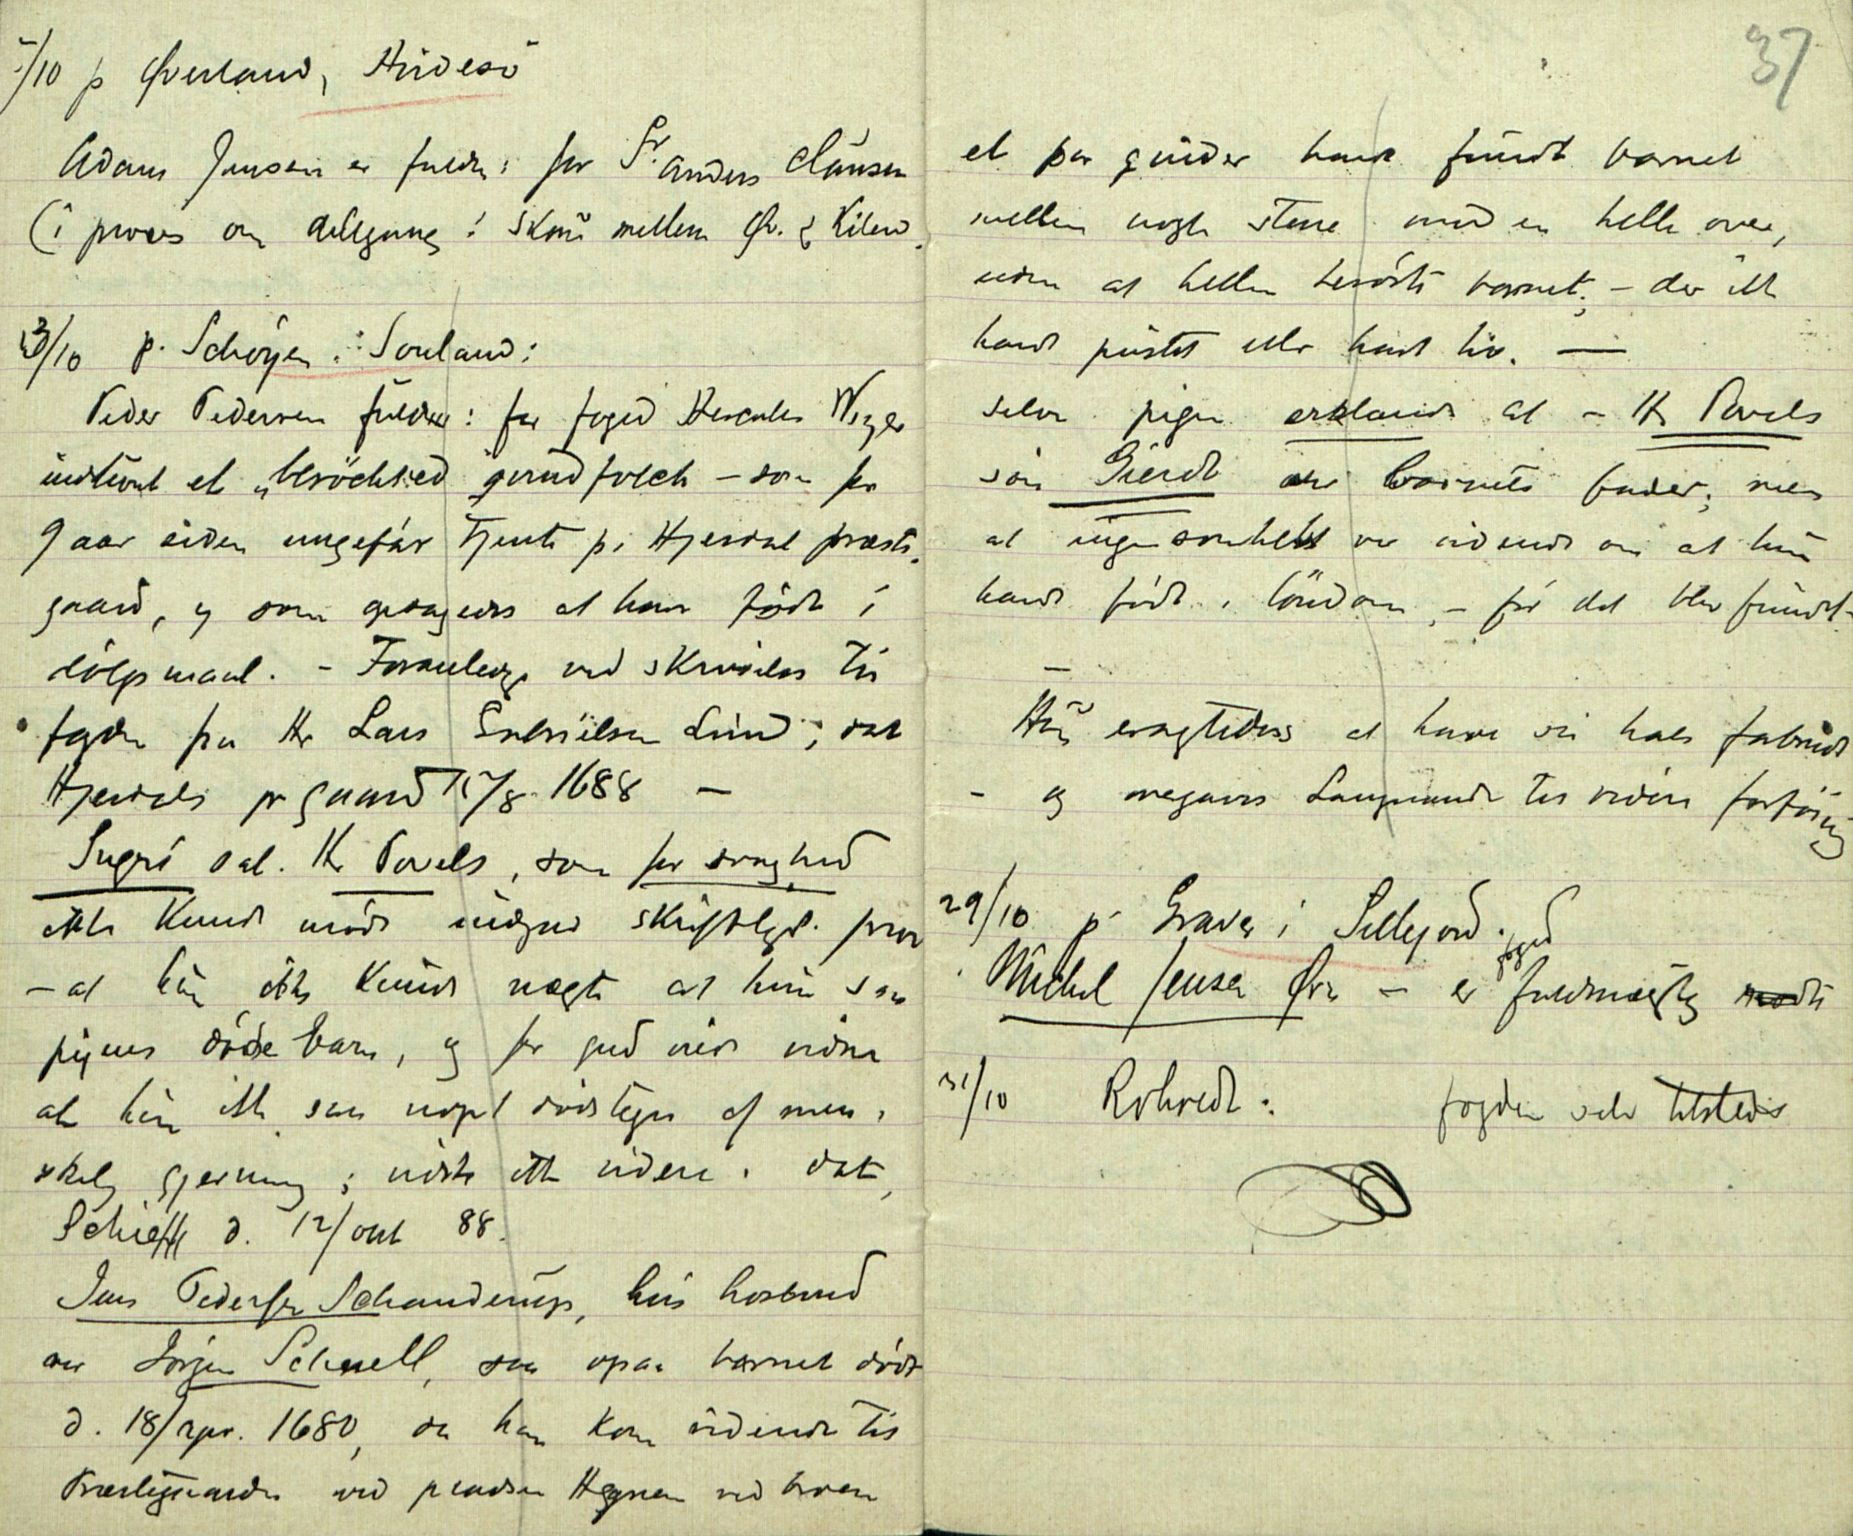 /10 p Øverland, Hvidesö
Adam Jensen er fuldm: for Sr. Anders Clausen
(i proces om delegang i skoug mellem Øv. & Kilen.
3/10 p. Schøyen i Souland:
Peder Pedersen fuldm: for foged Hercules Weyer
indtevnt et „beröchted qvindfolch – som for
9 aar siden ungefär tjente på Hjerdal præste-
gaard, og som opsagdes at have födt i
dölgsmaal. – Foranledge ved skrivelse til
fogden fra Hr Lars Gabrielsen Lund; dat
Hjerdals pr gaard 15/8 1688 –
Sugri sal. Hr Povels, som for svaghed
ikke kunde möde indgav skriftlyd. prov
– at hun ikke kunde nægte at hun saa
pigens döde barn, og for gud vilde vidne
at hun ikke saa noget dödstegn af men-
skelig gjerning; vidste ikke videre. dat,
d. 12/okt 88.
Jens Pedersen Schanderup, hvis hosbond
var Jörgen Schnell, saa opaa barnet döde
d. 18/apr. 1680, da han kom ridende til
Præstegaarden ved pladsen Hegnen ved
37
et par qvinder havde fundt barnet
mellem nogle stene med en helle over,
uden at hellen berörte barnet; – der ikke
havde pustet eller havt liv. —
selve pigen erklærede at – Hr Povels
sön Gierdt var barnets fader; men
at ingen somhelst var vidende om at hun
havde födt i löndom, – för det blev fundet –
—
Hun eragtedes at have sin hals forbrudt
– og overgaves Laugmanden til videre forföining
29/10 p Graver i Sillejord.
Michel Jensen Öra – er foged fuldmægtig
31/10 Rohoedt: fogden selv tilstede